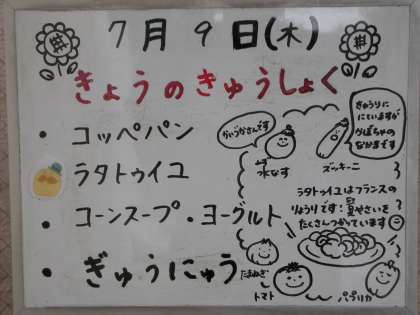 7月9日(木)
きょうのきゅうしょく
・コッペパン
・ラタトゥイユ
・コーンスープ・ヨーグルト
・ぎゅうにゅう
かいづかさんです
水なす
きゅうりに
にていますが
かぼちゃの
なかまです
ズッキーニ
ラタトゥイユはフランスの
りょうりです!夏やさいを
たくさんつかっています
たまねぎ
トマト
パプリカ